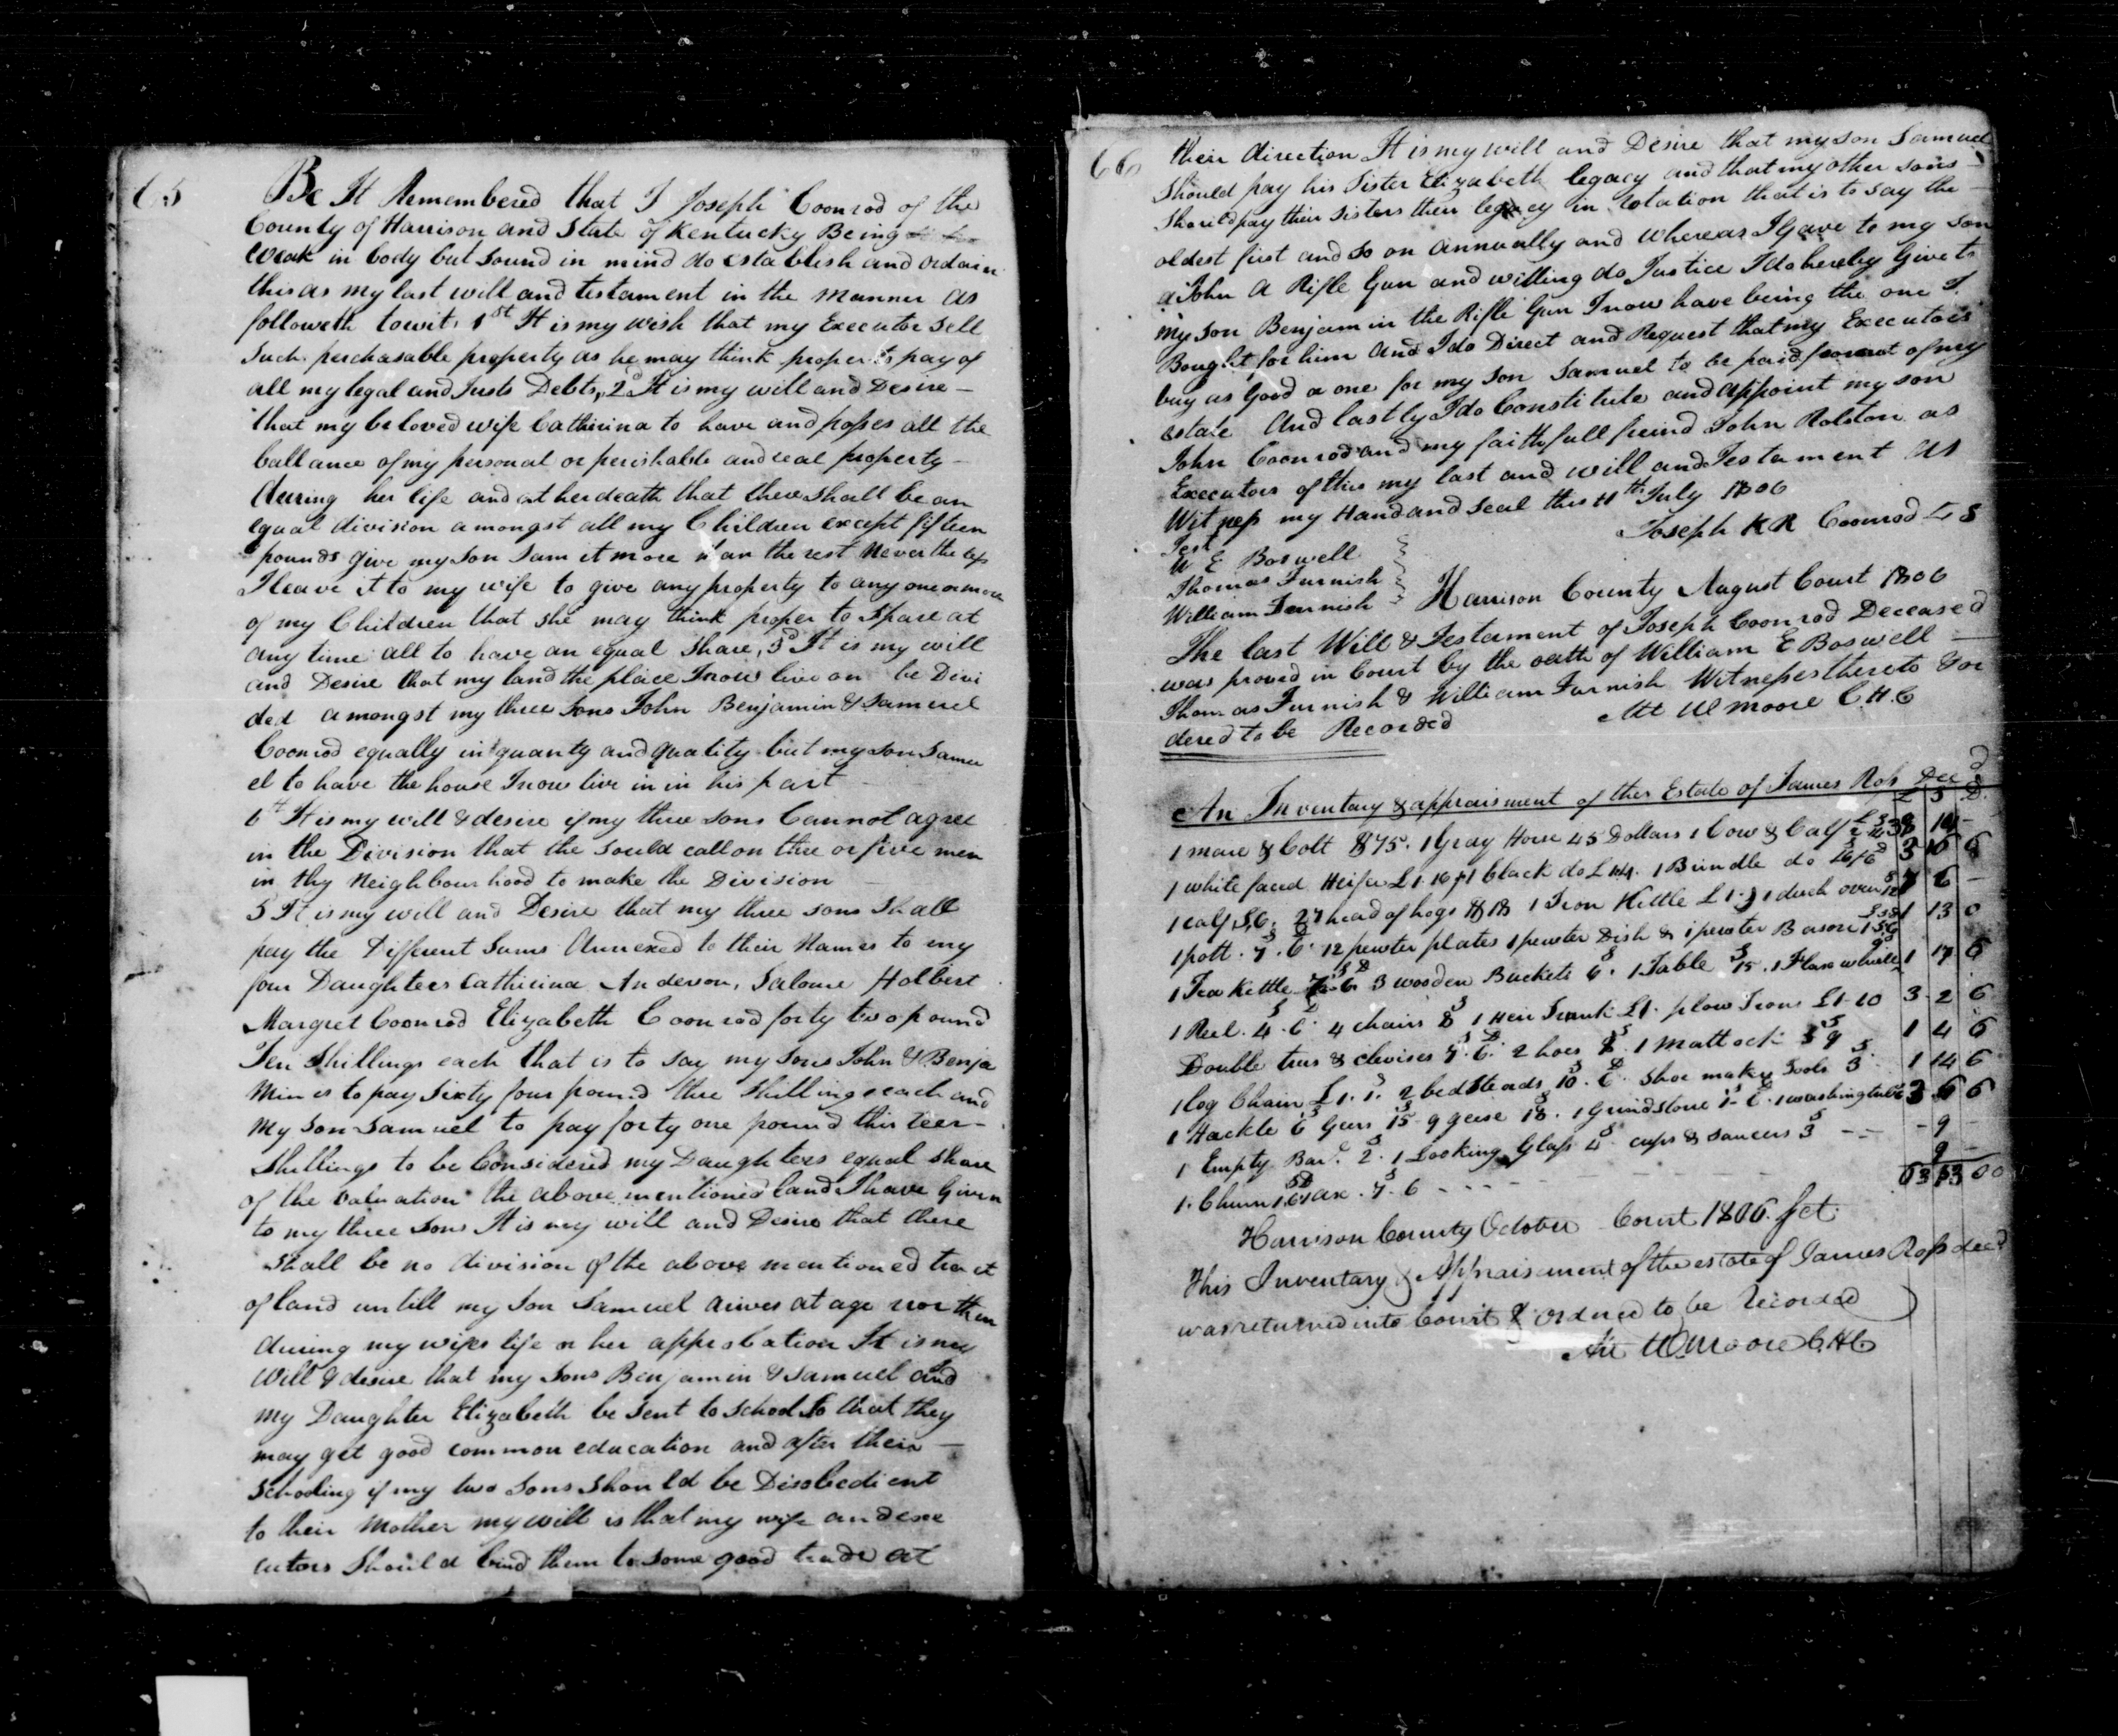 65
Be It Remembered that I Joseph Coonrod of the
County of Harrison and State of Kentucky Being
weak in body but sound in mind do establish and ordain
this as my last will and testament in the manner as
followeth towit, 1st It is my wish that my Executor sell
such perchasable property as he may think proper to pay of
all my legal and Justs Debts, 2d It is my will and Desire -
that my beloved wife Catherina to have and posses all the
ballance of my personal or perishable and real property -
during her life and at her death that there shall be an
equal division amongst all my Children except fifteen
pounds give my son Sam it more than the rest Never the less
I leave it to my wife to give any property to any one or more
of my Children that she may think proper to spare at
any time all to have an equal share, 3d It is my will
and Desire that my land the place I now live on be Divi
ded amongst my three sons John Benjamin & Samuel
Coonrod equally in quanty and quality but my son Samu
el to have the house I now live in in his part
It is my will & desire if my three sons Cannot agree
in the Division that the sould call on thre or five men
in thy Neighbourhood to make the Division
5 It is my will and Desire that my three sons Shall
pay the Different Sums Annexed to their Names to my
four Daughters Catherina Anderson, Salome Holbert
Margret Coonrod Elizabeth Coonrod forty two pound
Ten Shillings each that is to say my sons John & Benja
min is to pay Sixty four pound three Shillings each and
my son Samuel to pay forty one pound thirteen -
Shillings to be Considered my Daughters equal share
of the valuation the above mentioned land I have Given
to my three sons It is my will and Desire that there
shall be no division of the above mentioned tract
of land untill my son Samuel arives at age nor then
during my wifes life or her approbation It is my
will & desire that my sons Benjamin & Samuel and
my Daughter Elizabeth be sent to school so that they
may get good common education and after their -
schooling if my two sons should be Disobedient
to their Mother my will is that my wife and exe
cutors should bind them to some good trade at
66
their direction It is my will and Desire that my son Samuel
should pay his sister Elizabeth legacy and that my other sons
should pay their sisters their legacy in rotation that is to say the
oldest first and so on annually and whereas I Gave to my son
John a Rifle Gun and willing do Justice I do hereby Give to
my son Benjamin the Rifle Gun I now have being the one I
Bought for him and I do Direct and Request that my Executors
buy as Good a one for my son Samuel to be paid for out of my
estate And lastly I do Constitute and appoint my son
John Coonrod and my faithfull freind John Rolston as
Executors of this my last and will and Testament as
Witness my Hand and Seal this 11th July 1806
Joseph KR Coonrod L S
Test
W E Boswell
Thomas Furnish
William Furnish
Harrison County August Court 1806
The last Will & Testament of Joseph Coonrod Deceased
was proved in Court by the oath of William E Boswell -
Thomas Furnish & William Furnish Witnesses thereto & or
dered to be Recorded
Att W Moore C.H.C
An Inventory & appraisment of the Estate of James Ross Decd
£ S D
1 mare & Colt $75. 1 Gray Horse 45 Dollars 1 Cow & Calf
1 white faced Heifer £1.16 1 black do £1.4. 1 Brindle do 3 16 6
1 calf 27 head of hogs $18 1 Iron Kettle 1 duch oven 7 6 -
1 pott. 7.6 12 pewter plates 1 pewter Dish & 1 pewter Bason 1 13 0
1 Tea Kettle 3 wooden Buckets 6s. 1 Table 15s. 1 Flax wheel 1 17 6
1 Reel. 4.6 4 chairs 8s 1 Trunk £1. plow Irons £1-10 3 2 6
Double trees & clevises 7.6. 2 hoes 1 Mattock 9s 1 4 6
1 log Chain £1.1. 2 bedsteads 10.6 Shoe makers Tools 3s 1 14 6
1 Hackle 6s Gears 15s 9 geese 18s. 1 Grindstone 1 washing tub 3 6 6
1 Empty Barl. 2s. 1 Looking Glass 4s cups & saucers 3s - 9 -
1. Churn 1 ax. 7.6 9
Harrison County October Court 1806 Sct.
This Inventory & Appraisement of the estate of James Ross decd
was returned into Court & ordered to be Recorded
Att W Moore C.H.C